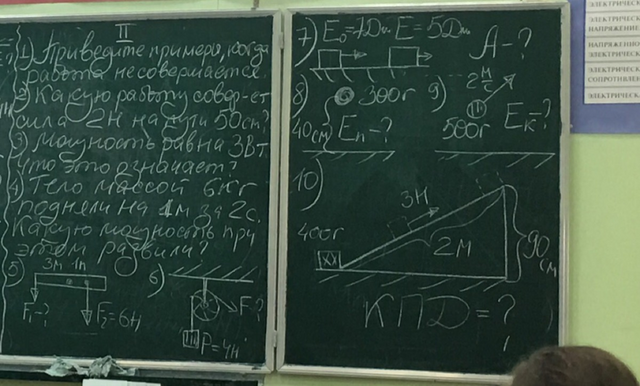 II
1) Приведите примеры, когда
работа не совершается.
2) Какую работу совер-ет
сила 2Н на пути 50см?
3) Мощность равна 3Вт
что это означает?
4) Тело массой 6кг
подняли на 1м за 2с.
Какую мощность при
этом развили?
5)
F₁-? F₂=6Н
6)
F-?
P=4Н
7) E₀=1Дж E=5Дж A-?
8) 300г
40см Eп-?
9) 2 м/с
500г Eк-?
10)
3Н
400г
2м
90см
КПД=?
ЭЛЕКТРИЧЕСКИ
НАПРЯЖЕНИЕ